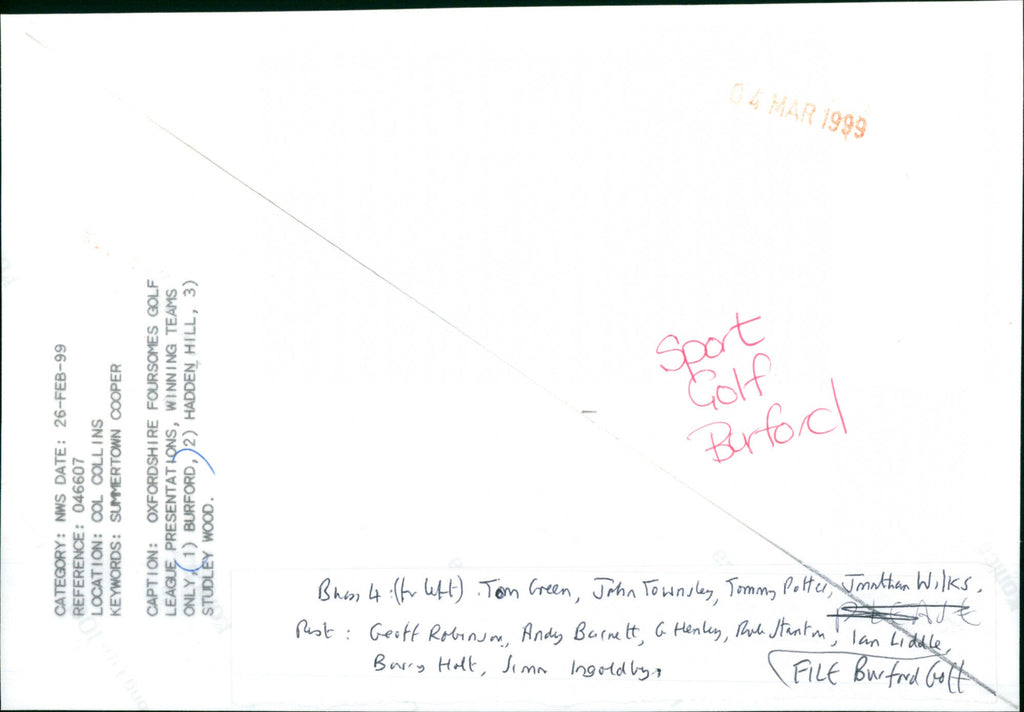 04 MAR 1999
CATEGORY: NWS DATE: 26-FEB-99
REFERENCE: 046607
LOCATION: COL COLLINS
KEYWORDS: SUMMERTOWN COOPER
CAPTION: OXFORDSHIRE FOURSOMES GOLF
LEAGUE PRESENTATIONS, WINNING TEAMS
ONLY, 1) BURFORD, 2) HADDEN HILL, 3)
STUDLEY WOOD.
Sport
Golf
Burford
4: (fr left). Tom Green, John Townsley, Tommy Potter, Jonathan Wilks.
Geoff Robinson, Andy Barnett, G Henley, Stanton, Ian Liddle,
Barry Holt, Simon Ingoldby.
FILE Burford Golf